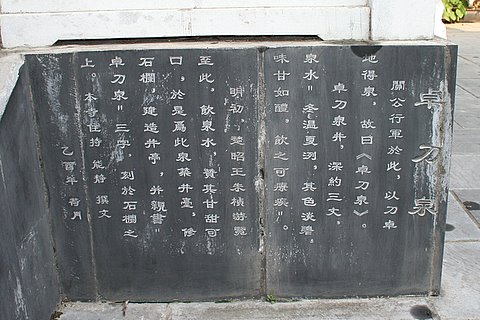 卓刀泉
關公行軍於此，以刀卓
地得泉，故曰《卓刀泉》。
卓刀泉井，深約三丈，
泉水"冬温夏冽，其色淡碧，
味甘如醴，飲之可療疾"。
明初，楚昭王朱楨游覽
至此，飲泉水，贊其甘甜可
口，於是爲此泉築井臺，修
石欄，建造井亭，并親書"
卓刀泉"三字，刻於石欄之
上。本寺住持 能静 撰文
乙酉年 月